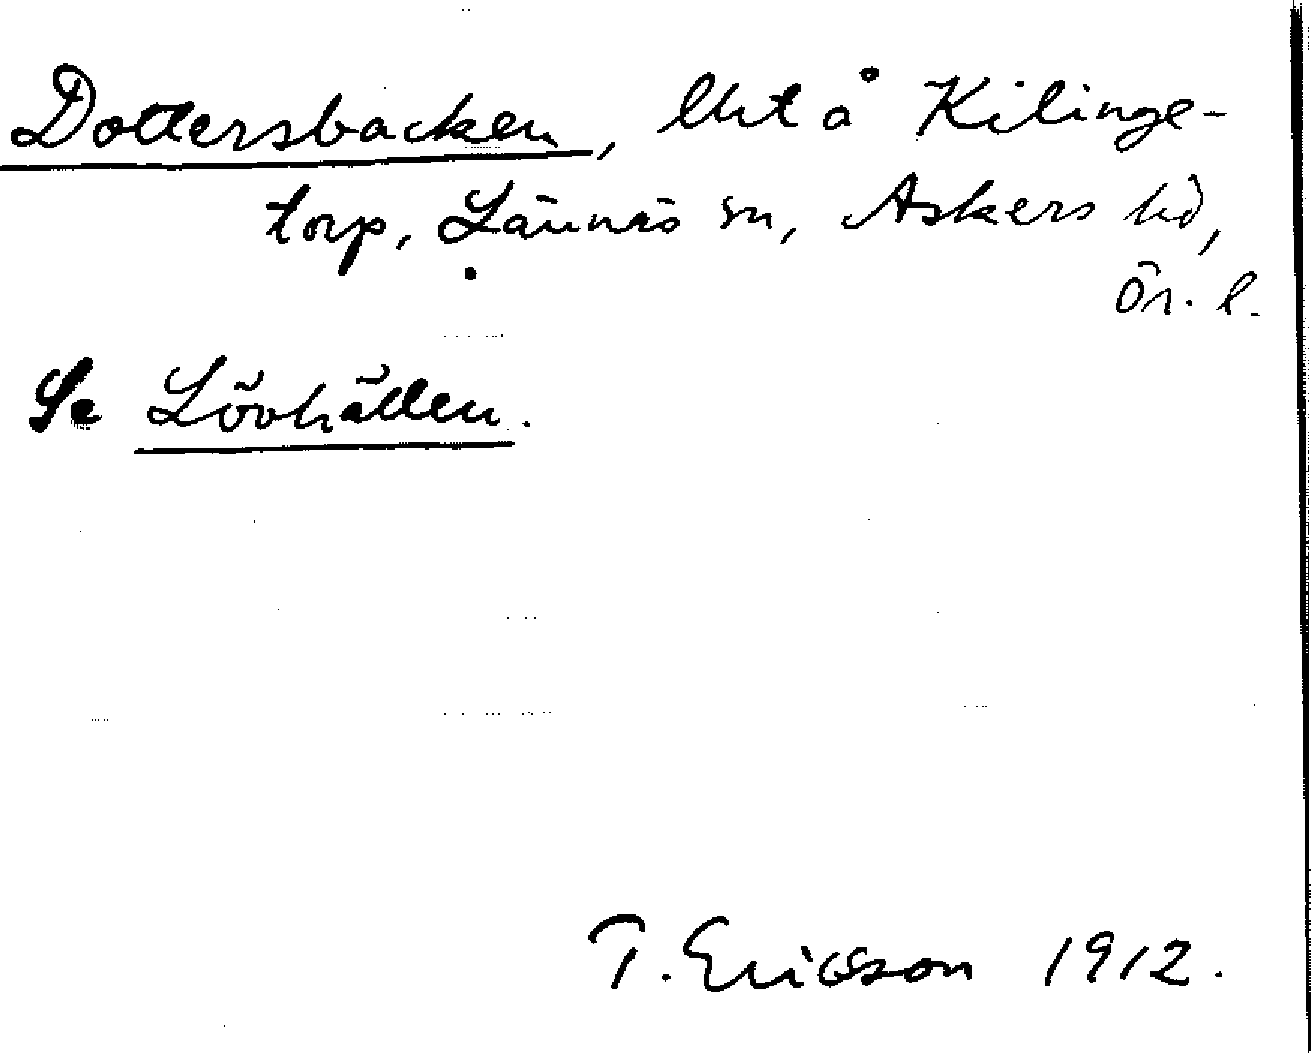 Dottersbacken, lht å Kilinge-
torp, Lännäs sn, Askers hd,
Ör. l.
Se Lövhällen.
T. Ericsson 1912.